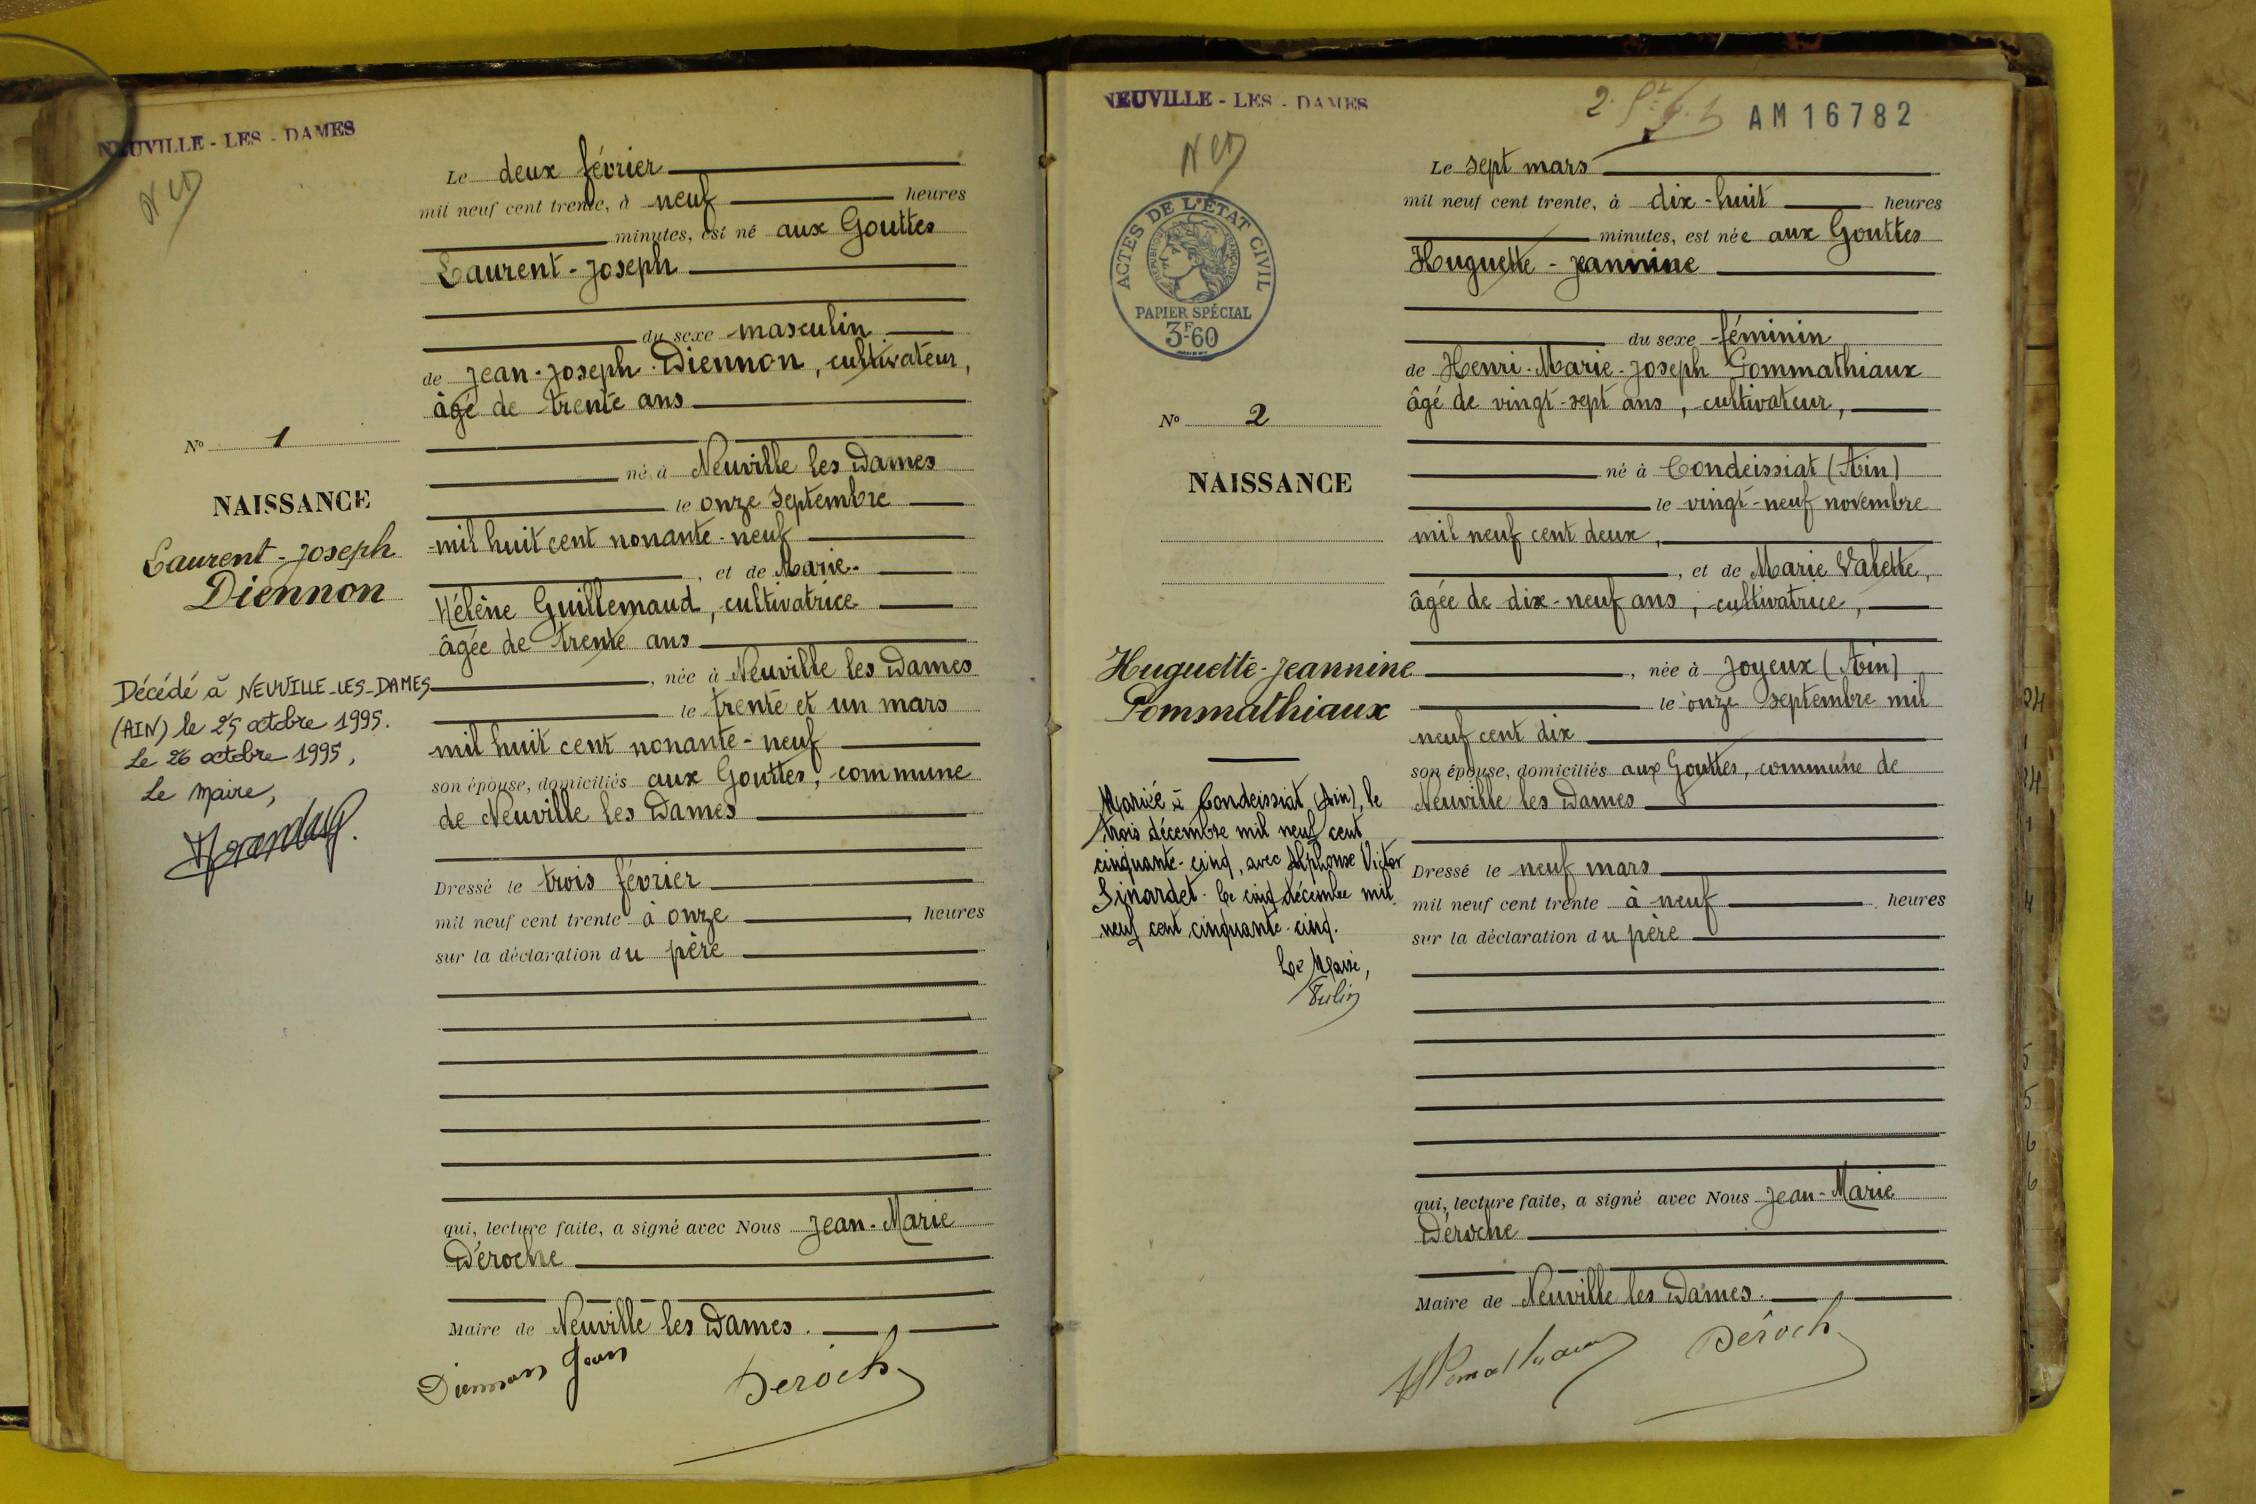 NEUVILLE - LES - DAMES
Le deux février
mil neuf cent trente, à neuf heures
minutes, est né aux Gouttes
Laurent-Joseph
du sexe masculin
de Jean-Joseph Diennon, cultivateur,
âgé de trente ans
né à Neuville les Dames
le onze septembre
mil huit cent nonante-neuf
, et de Marie-
Hélène Guillemaud, cultivatrice
âgée de trente ans
, née à Neuville les Dames
le trente et un mars
mil huit cent nonante-neuf
son épouse, domiciliés aux Gouttes, commune
de Neuville les Dames
Dressé le trois février
mil neuf cent trente à onze, heures
sur la déclaration du père
qui, lecture faite, a signé avec Nous Jean-Marie
Déroche
Maire de Neuville les Dames.
Diennon Jean
Déroch
N° 1
NAISSANCE
Laurent-Joseph
Diennon
Décédé à NEUVILLE-LES-DAMES
(AIN) le 25 octobre 1995.
Le 26 octobre 1995,
Le Maire,
NEUVILLE - LES - DAMES
AM16782
ACTES DE L'ÉTAT CIVIL
RÉPUBLIQUE FRANÇAISE
PAPIER SPÉCIAL
3F60
N° 2
NAISSANCE
Huguette-Jeannine
Pommathiaux
Mariée à Condeissiat (Ain), le
trois décembre mil neuf cent
cinquante-cinq, avec Alphonse Victor
Sinardet. Le cinq décembre mil
neuf cent cinquante-cinq.
Le Maire,
Le sept mars
mil neuf cent trente, à dix-huit heures
minutes, est née aux Gouttes
Huguette-Jeannine
du sexe féminin
de Henri-Marie-Joseph Pommathiaux
âgé de vingt-sept ans, cultivateur,
né à Condeissiat (Ain)
le vingt-neuf novembre
mil neuf cent deux,
, et de Marie Valette,
âgée de dix-neuf ans, cultivatrice,
, née à Joyeux (Ain)
le onze septembre mil
neuf cent dix
son épouse, domiciliés aux Gouttes, commune de
Neuville les Dames
Dressé le neuf mars
mil neuf cent trente à neuf heures
sur la déclaration du père
qui, lecture faite, a signé avec Nous Jean-Marie
Déroche
Maire de Neuville les Dames.
Déroch